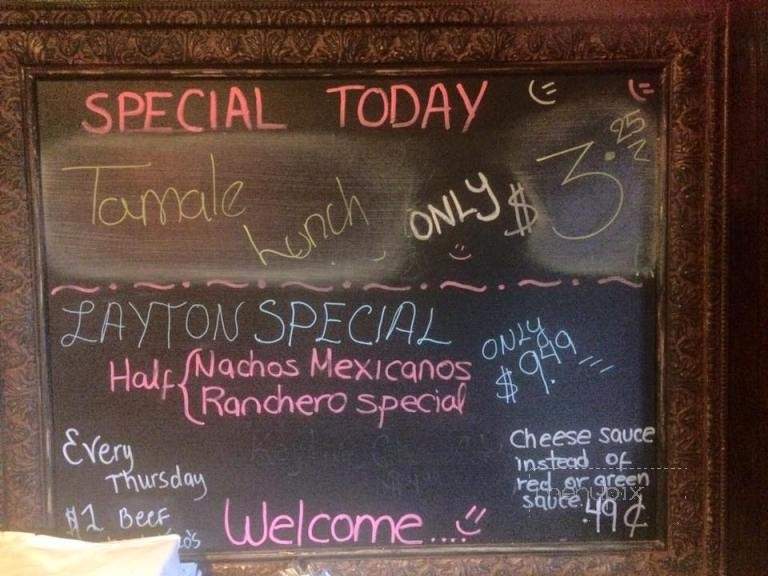 SPECIAL TODAY
Tamale Lunch ONLY $3.25
LAYTON SPECIAL
Half { Nachos Mexicanos
Ranchero special
ONLY
$9.49
Every
Thursday
$1 Beef
Cheese sauce
instead of
red or green
sauce .49¢
Welcome....
menupix